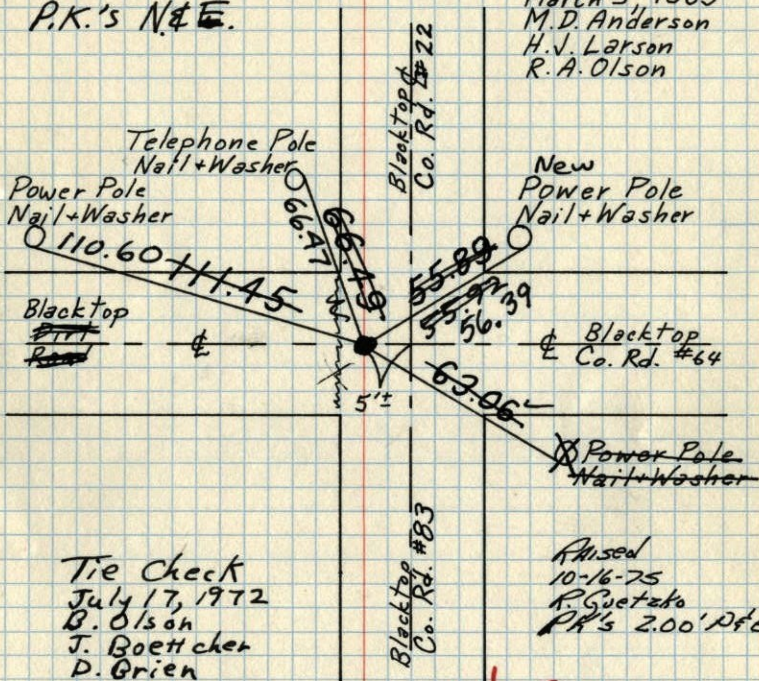 P.K.'s N&E.
M.D. Anderson
H.J. Larson
R.A. Olson
Blacktop
Co. Rd. #22
Telephone Pole
Nail+Washer
Power Pole
Nail+Washer
New
Power Pole
Nail+Washer
110.60
111.45
66.47
66.49
55.89
55.92
56.39
Blacktop
Dirt
Road
℄
℄
Blacktop
Co. Rd. #64
5'±
63.06
Power Pole
Nail+Washer
Blacktop
Co. Rd. #83
Tie Check
July 17, 1972
B. Olson
J. Boettcher
D. Brien
Raised
10-16-75
R. Guetzko
PK's 2.00'